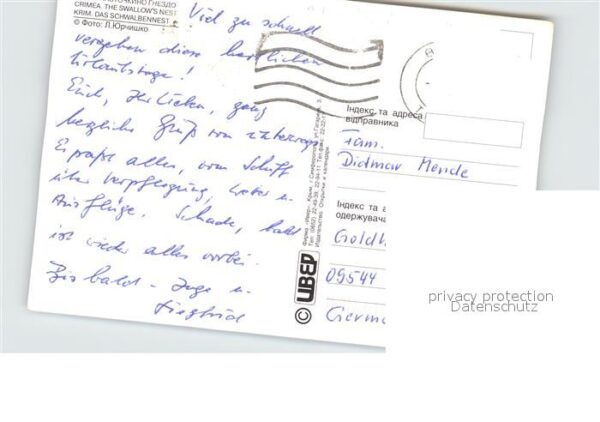 ЧКИНО ГНЕЗДО
CRIMEA. THE SWALLOW'S NEST
KRIM. DAS SCHWALBENNEST
© Фото: Л.Юрчишко
Viel zu schnell
vergehen diese herrlichen
Urlaubstage!
Euch, Ihr Lieben, ganz
herzliche Grüße von unterwegs.
Es passt alles, vom Schiff
über Verpflegung, Wetter u.
Ausflüge. Schade, bald
ist wieder alles vorbei.
Bis bald - Inge u.
Siegfried
© UBEP
Індекс та адреса
відправника
Fam.
Dietmar Mende
Індекс та а
одержувача
Goldh
09544
Germa
privacy protection
Datenschutz